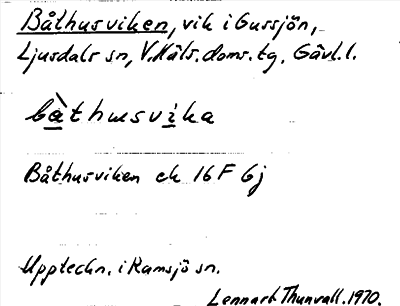 Båthusviken, vik i Gussjön,
Ljusdals sn, V. Häls. doms. tg, Gävl. l.
bàthusvika
Båthusviken ek 16 F 6j
Upptechn. i Ramsjö sn.
Lennart Thunvall. 1970.